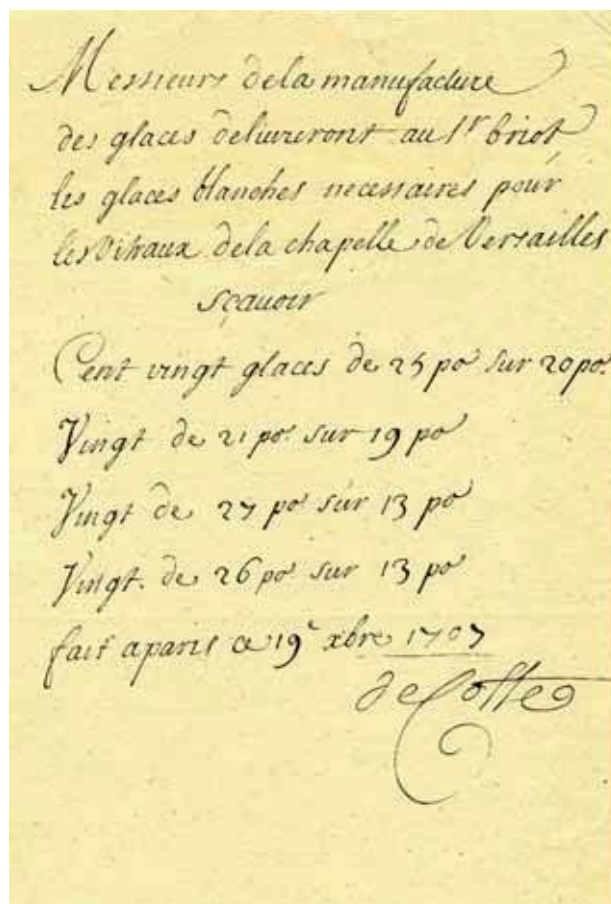 Messieurs dela manufacture
des glaces delivreront au Sr briot
les glaces blanches necessaires pour
les Vitraux dela chapelle de Versailles
sçavoir
Cent vingt glaces de 25 po sur 20 po.
Vingt de 21 po. sur 19 po
Vingt de 27 po sur 13 po
Vingt. de 26 po sur 13 po
fait a paris ce 19e xbre 1707
de Cotte